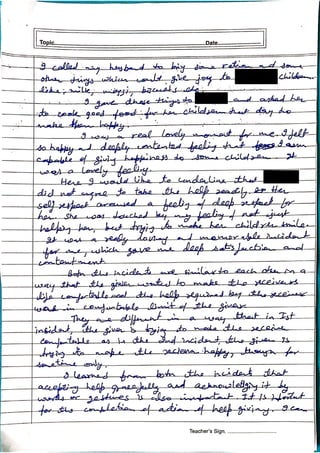 Topic Date
I called my husband to buy some ration and some
other things which could give joy to children
like: milk, biscuits etc.
I gave these things to and asked her
to cook good food for her children that day to
make them happy.
It was a real lovely moment for me. I felt
so happy and deeply contented feeling that I am
capable of giving happiness to some children. It
was a lovely feeling.
Here I would like to underline that
did not agree to take the help readily. Her
self respect aroused a feeling of deep respect for
her. She was touched by my feeling of not just
helping her, but trying to make her children smile.
It was a really loving and memorable incident
for me, which gave me deep satisfaction and
contentment.
Both the incidents are similar to each other in a
way that the giver wanted to make the receivers
life comfortable and the help required by the receiver
was in comfortable limit of the giver.
They are different in a way that in Ist
incident, the giver is trying to make the receiver
comfortable as in the 2nd incident, the giver is
trying to make the receiver happy, though for
sometime only.
I learned from both the incidents that
accepting help gracefully and acknowledging it by
words or gestures is also important. It is important
for the completion of action of help giving. I can
Teacher's Sign.